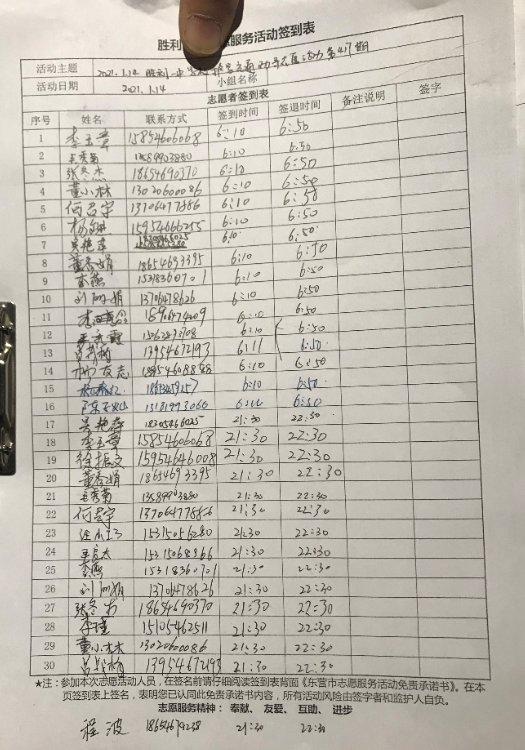 胜利 愿服务活动签到表
活动主题 2021.1.14 胜利一中 交通劝导志愿活动第417期
活动日期 2021.1.14 小组名称
志愿者签到表
序号 姓名 联系方式 签到时间 签退时间 备注说明 签字
1 李玉章 15854606068 6:10 6:50
2 王秀菊 13589903880 6:10 6:50
3 张冬杰 18654690370 6:10 6:50
4 董小林 13020600086 6:10 6:50
5 何召宇 13706477886 6:10 6:50
6 15954666255 6:10 6:50
7 6:10 6:50
8 董香娟 18654693395 6:10 6:50
9 燕 15318360701 6:10 6:50
10 刘 娟 13706478626 6:10 6:50
11 6:10 6:50
12 6:10 6:50
13 13954672193 6:11 6:50
14 友志 6:10 6:50
15 6:10 6:50
16 13181993066 6:50
17 吴艳萍 18305466025 21:30 22:30
18 李玉章 15854606068 21:30 22:30
19 徐振文 15954646008 21:30 22:30
20 董香娟 18654693395 21:30 22:30
21 王秀菊 13589903880 21:30 22:30
22 何召宇 13706477886 21:30 22:30
23 15315056280 21:30 22:30
24 15315068966 21:30 22:30
25 燕 15318360701 21:30 22:30
26 刘 娟 13706478626 21:30 22:30
27 张冬杰 18654690370 21:30 22:30
28 李 15105462511 21:30 22:30
29 董小林 13020600086 21:30 22:30
30 13954672193 21:30 22:30
★注：参加本次志愿活动人员，在签名前请仔细阅读签到表背面《东营市志愿服务活动免责承诺书》。在本
页签到表上签名，表明您已认同此免责承诺书内容，所有活动风险由签字者和监护人自负。
志愿服务精神： 奉献、 友爱、 互助、 进步
程波 18654679258 21:30 22:30